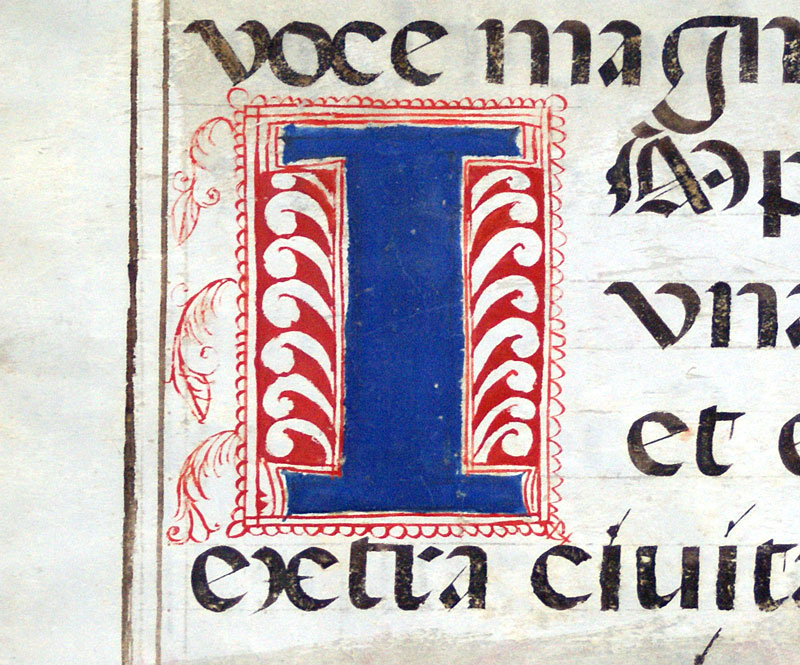 voce magn
I AP
vna
et e
extra ciuita